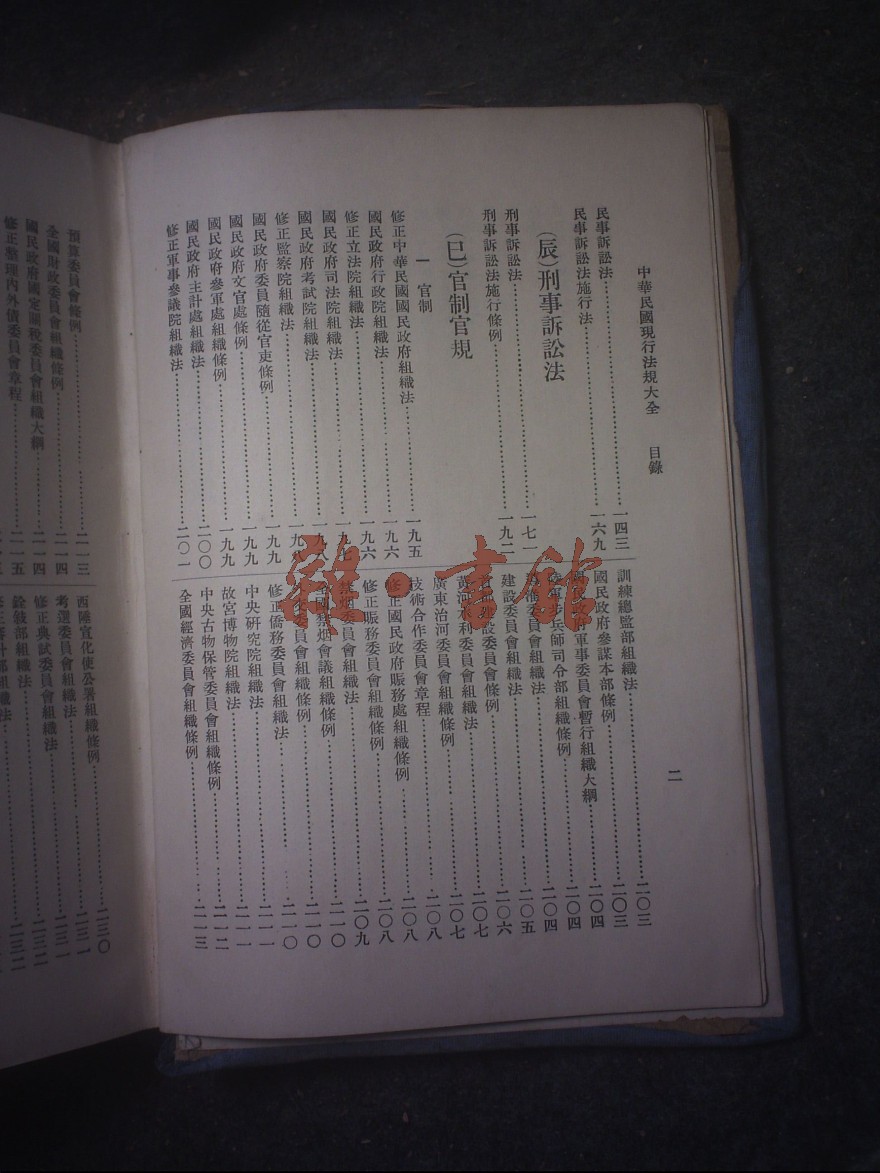 中華民國現行法規大全　目錄　二
民事訴訟法……一四三
民事訴訟法施行法……一六九
(辰)刑事訴訟法
刑事訴訟法……一七一
刑事訴訟法施行條例……一九二
(巳)官制官規
一　官制
修正中華民國國民政府組織法……一九五
國民政府行政院組織法……一九六
修正立法院組織法……一九六
國民政府司法院組織法……一九七
國民政府考試院組織法……一九八
修正監察院組織法……一九八
國民政府委員隨從官吏條例……一九九
國民政府文官處條例……一九九
國民政府參軍處組織條例……一九九
國民政府主計處組織法……二〇〇
修正軍事參議院組織法……二〇一
訓練總監部組織法……二〇三
國民政府參謀本部條例……二〇三
國民政府軍事委員會暫行組織大綱……二〇四
陸軍步兵師司令部組織條例……二〇四
導淮委員會組織法……二〇四
建設委員會組織法……二〇五
建設委員會條例……二〇六
黃河水利委員會組織法……二〇七
廣東治河委員會組織條例……二〇七
技術合作委員會章程……二〇八
修正國民政府賑務處組織條例……二〇八
修正賑務委員會組織條例……二〇八
禁烟委員會組織法……二〇九
全國禁烟會議組織條例……二一〇
委員會組織條例……二一〇
修正僑務委員會組織法……二一〇
中央研究院組織法……二一一
故宮博物院組織法……二一一
中央古物保管委員會組織條例……二一二
全國經濟委員會組織條例……二一三
預算委員會條例……二一三
全國財政委員會組織條例……二一四
國民政府國定關稅委員會組織大綱……二一四
修正整理內外債委員會章程……二一五
西陲宣化使公署組織條例……二三〇
考選委員會組織法……二三一
修正典試委員會組織法……二三一
銓敍部組織法……二三二
修正審計部組織法
雜·書館